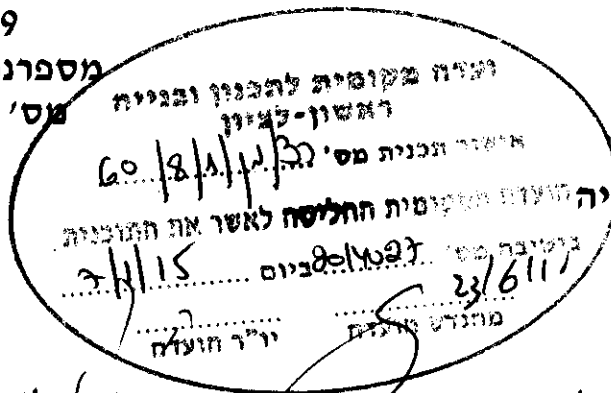 9
מספרנ
מס'
ועדה מקומית לתכנון ובנייה
ראשון-לציון
אישור תכנית מס' 60/8/1/
יה
הועדה המקומית החליטה לאשר את התוכנית
בישיבה מס' ביום 7/1/15
23/6/11
מהנדס הועדה
יו"ר הועדה